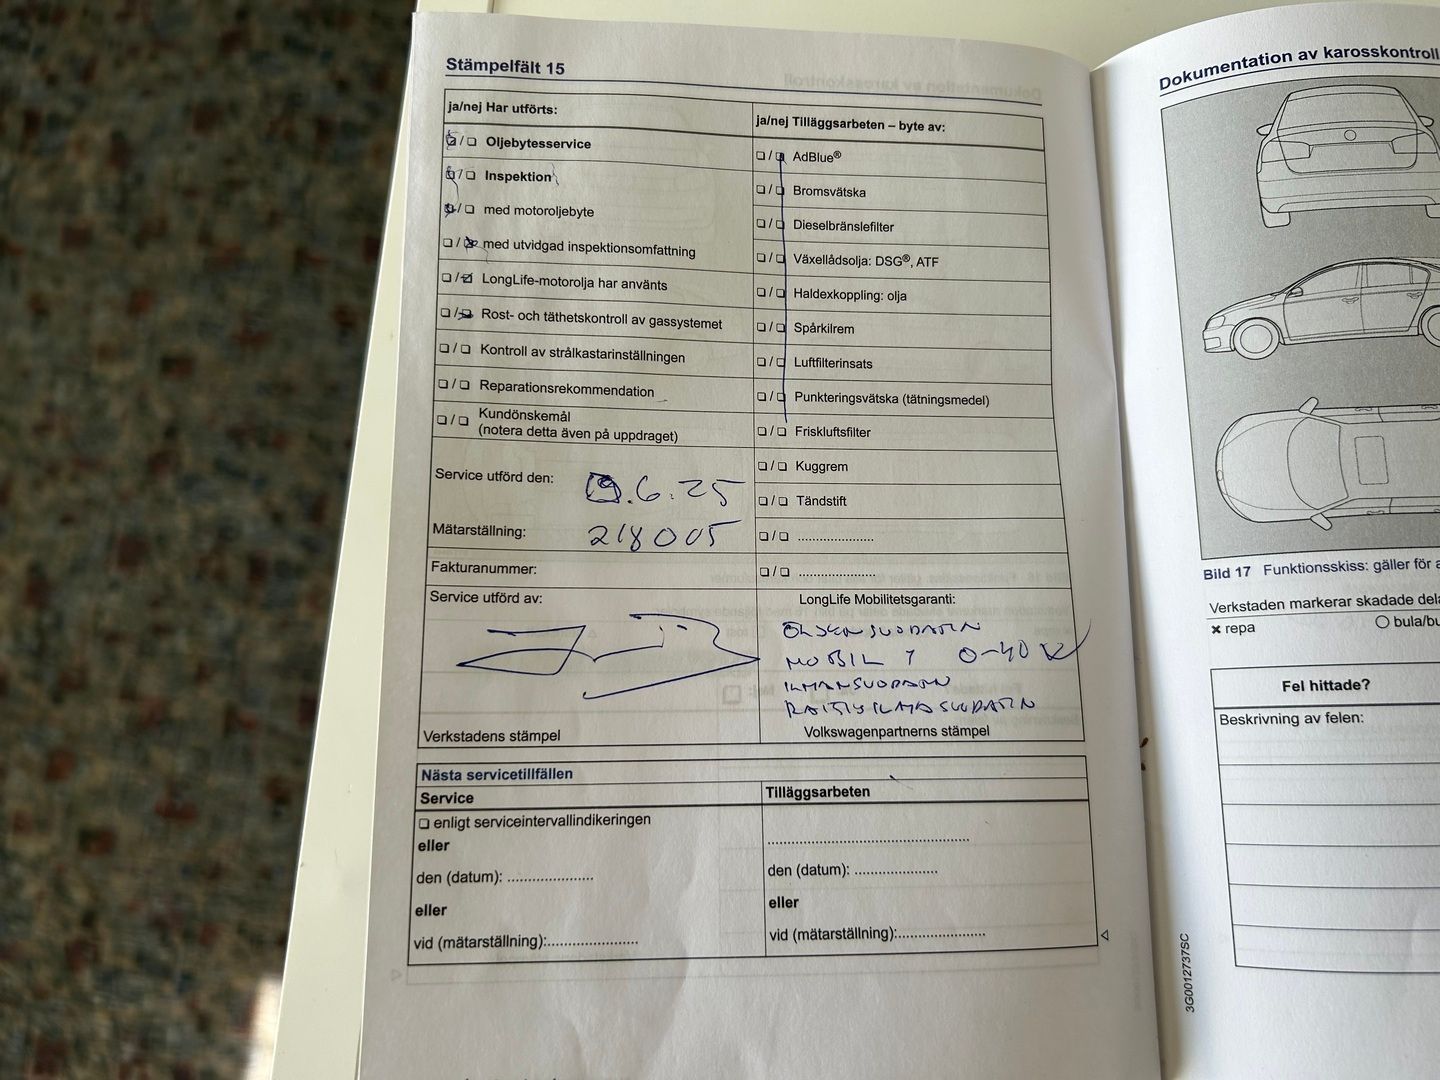 Stämpelfält 15
ja/nej Har utförts:
❏ / ❏ Oljebytesservice
❏ / ❏ Inspektion
❏ / ❏ med motoroljebyte
❏ / ❏ med utvidgad inspektionsomfattning
❏ / ❏ LongLife-motorolja har använts
❏ / ❏ Rost- och täthetskontroll av gassystemet
❏ / ❏ Kontroll av strålkastarinställningen
❏ / ❏ Reparationsrekommendation
❏ / ❏ Kundönskemål
(notera detta även på uppdraget)
Service utförd den: .6.25
Mätarställning: 218005
Fakturanummer:
Service utförd av:
Verkstadens stämpel
ja/nej Tilläggsarbeten – byte av:
❏ / ❏ AdBlue®
❏ / ❏ Bromsvätska
❏ / ❏ Dieselbränslefilter
❏ / ❏ Växellådsolja: DSG®, ATF
❏ / ❏ Haldexkoppling: olja
❏ / ❏ Spårkilrem
❏ / ❏ Luftfilterinsats
❏ / ❏ Punkteringsvätska (tätningsmedel)
❏ / ❏ Friskluftsfilter
❏ / ❏ Kuggrem
❏ / ❏ Tändstift
❏ / ❏ .....................
❏ / ❏ .....................
LongLife Mobilitetsgaranti:
MOBIL 1 0-40
ILMANSUODATIN
RAITISILMASUODATIN
Volkswagenpartnerns stämpel
Nästa servicetillfällen
Service
❏ enligt serviceintervallindikeringen
eller
den (datum): .....................
eller
vid (mätarställning):......................
Tilläggsarbeten
..................................................
den (datum): .....................
eller
vid (mätarställning):......................
Dokumentation av karosskontroll
Bild 17 Funktionsskiss: gäller för
Verkstaden markerar skadade
✖ repa
○ bula/
Fel hittade?
Beskrivning av felen:
3G0012737SC